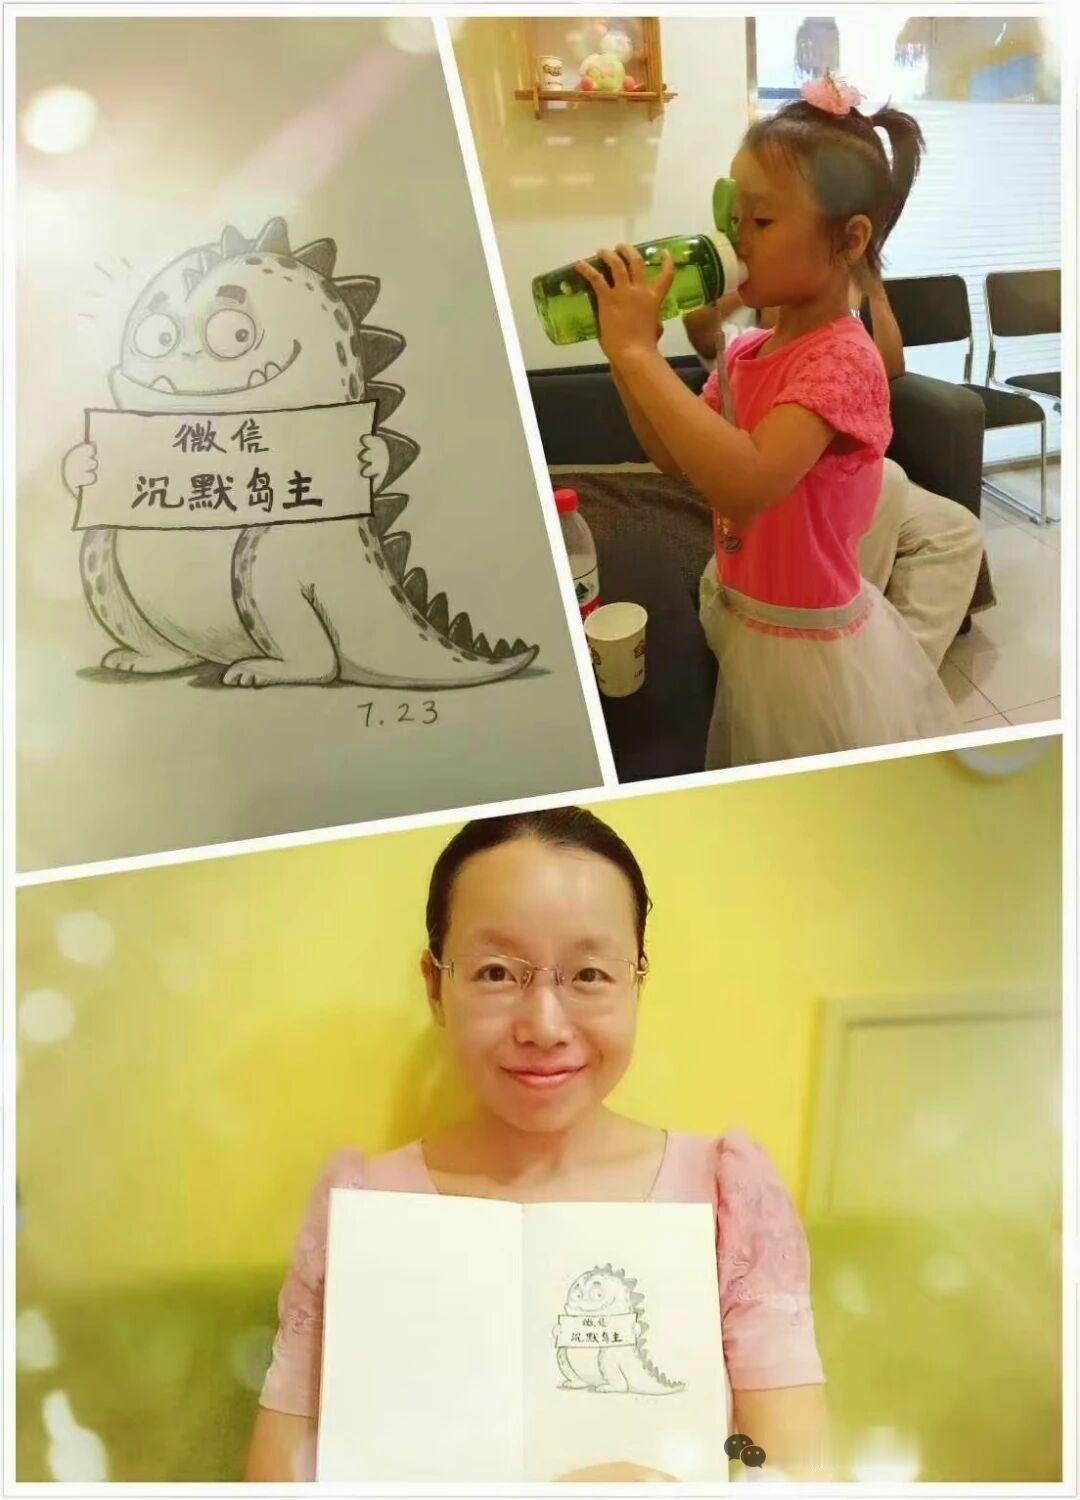 微信
沉默岛主
7.23
微信
沉默岛主